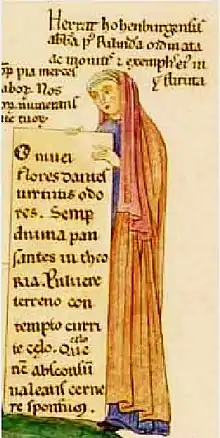 Herrat hohenburgensis
abba p' Rilinda ordinata
ac monitis & exemplis ei' in
stituta
pia merces
labor. Nos
numerans
O nivei
flores dantes
virtutis odo
res. Semp
divina pau
santes in theo
ria. Pulvere
terreno con
tempto curri
te celo. Que
celo
nc absconsu
valeatis cerne
re sponsum.